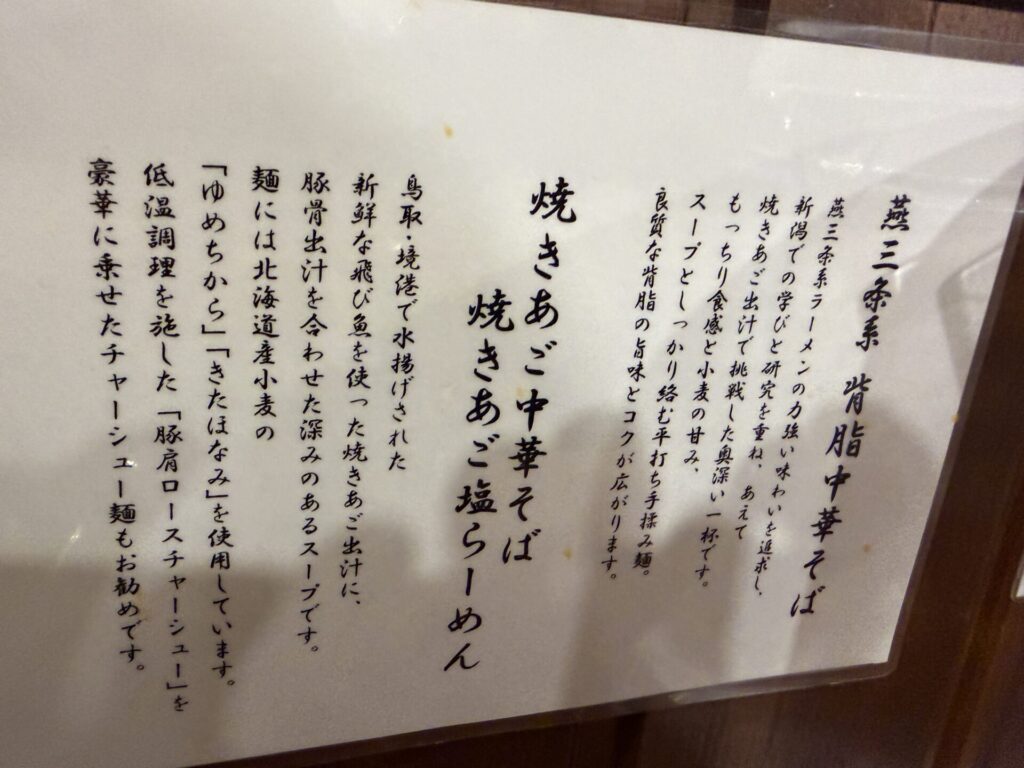 燕三条系 背脂中華そば
燕三条系ラーメンの力強い味わいを追求し、
新潟での学びと研究を重ね、あえて
焼きあご出汁で挑戦した奥深い一杯です。
もっちり食感と小麦の甘み、
スープとしっかり絡む平打ち手揉み麺。
良質な背脂の旨味とコクが広がります。
焼きあご中華そば
焼きあご塩らーめん
鳥取・境港で水揚げされた
新鮮な飛び魚を使った焼きあご出汁に、
豚骨出汁を合わせた深みのあるスープです。
麺には北海道産小麦の
「ゆめちから」「きたほなみ」を使用しています。
低温調理を施した「豚肩ロースチャーシュー」を
豪華に乗せたチャーシュー麺もお勧めです。